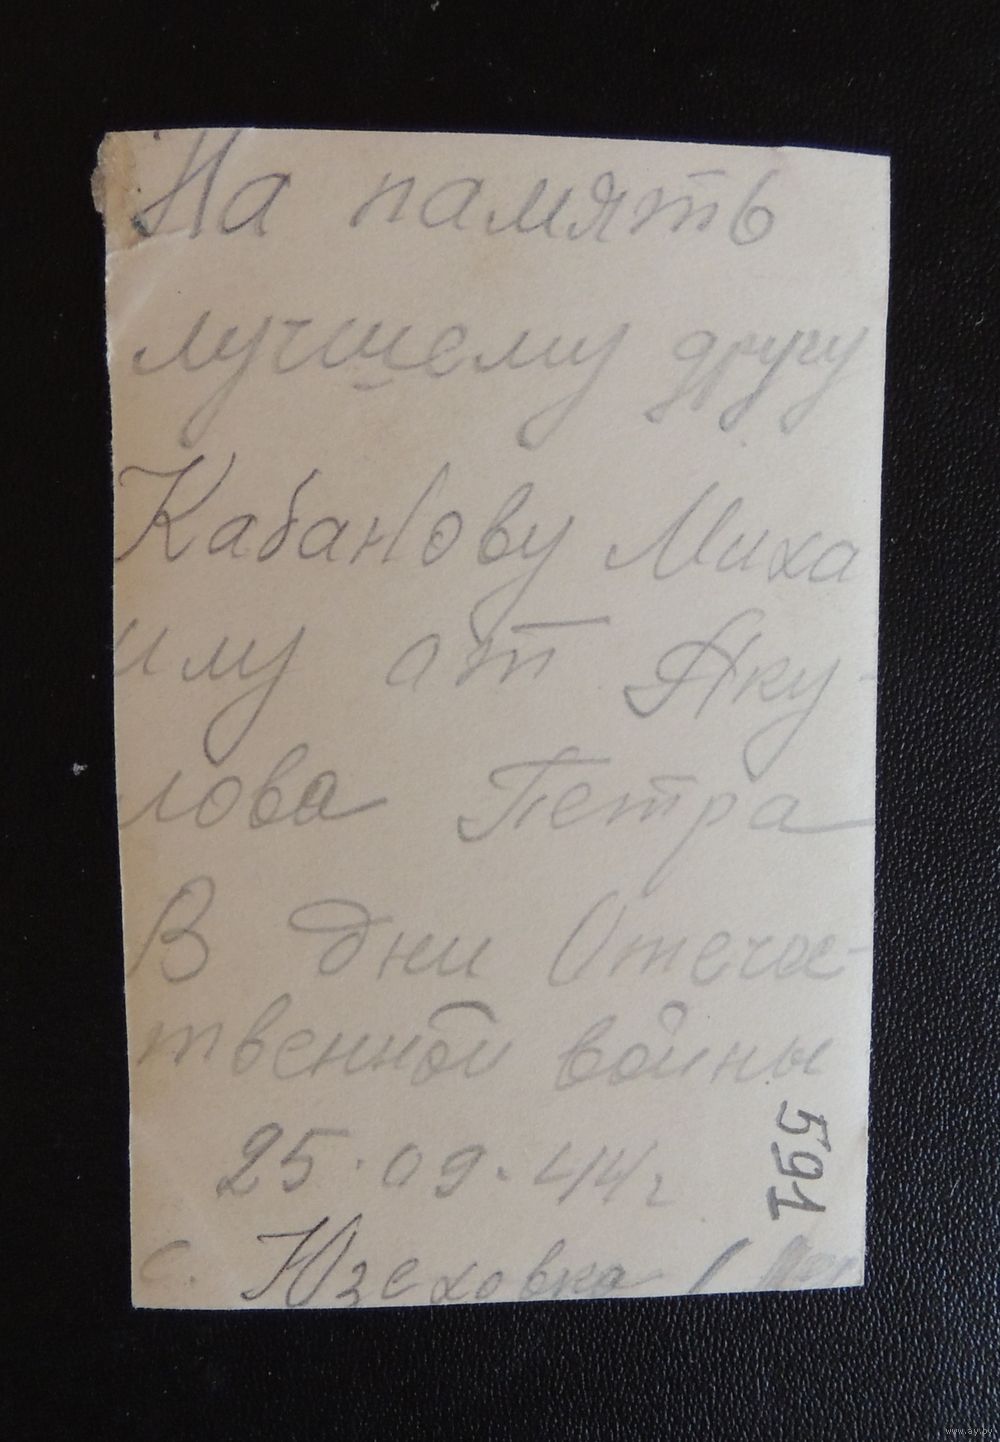 На память
лучшему другу
Кабанову Миха
илу от Яку-
лова Петра
В дни Отечес-
твенной войны
25.09.44г
с. Юзеховка (
591
www.ay.by